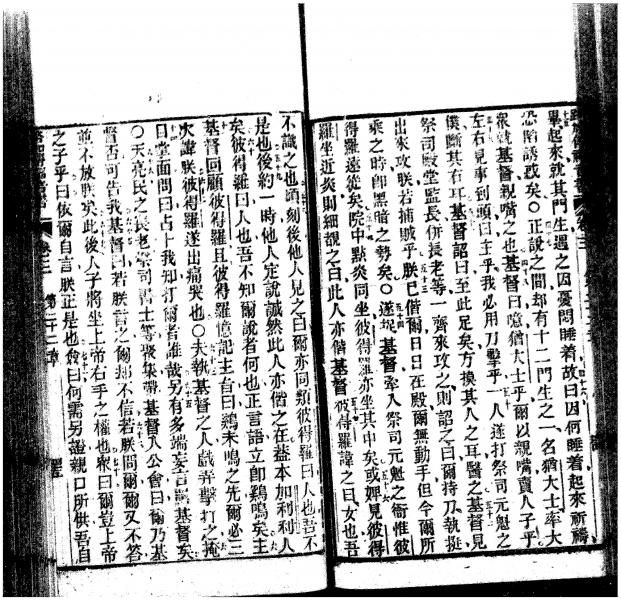 畢起來就其門生遇之因憂悶睡着故曰因何睡着起來祈禱
恐陷誘惑矣〇正說之間却有十二門生之一名猶大士率大
衆就基督親嘴之也基督曰噫猶大士乎爾以親嘴賣人子乎
左右見事到頭曰主乎我必用刀擊乎一人遂打祭司元魁之
僕斷其右耳基督詔曰至此足矣方摸其人之耳醫之基督見
祭司殿堂監長併長老等一齊來攻之則詔之曰爾持刀執挺
出來攻朕若捕賊乎朕已偕爾日日在殿爾無動手但今爾所
乘之時即黑暗之勢矣〇遂捉基督牽入祭司元魁之衙惟彼
得羅遠從矣院中點炎同坐彼得羅亦坐其中矣或婢見彼得
羅坐近炎則細覩之曰此人亦偕基督彼得羅諱之曰女也吾
不識之也頃刻後他人見之曰爾亦同類彼得羅曰人也吾不
是也後約一時他人定說誠然此人亦偕之在益本加利利人
矣彼得羅曰人也吾不知爾說者何也正言語立卽鷄鳴矣主
基督回顧彼得羅且彼得羅憶記主旨曰鷄未鳴之先爾必三
次諱朕彼得羅遂出痛哭也〇夫執基督之人戲弄擊打之掩
目掌面問曰占卜我知打爾者誰哉另有多端妄言謂基督矣
〇天亮民之長老祭司書士等聚集帶基督入公會曰爾乃基
督否可告我基督曰若朕言之爾都不信若朕問爾爾又不答
並不放朕矣此後人子將坐上帝右手之權也衆曰爾豈上帝
之子乎曰依爾自言朕正是也僉曰何需另證親口所供吾自
卷三 第二十二章